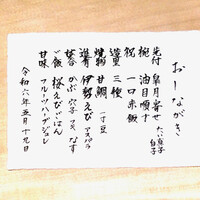 おしながき
先付 皐月寄せ たい真子 白子
椀 油目順才
祝 一口赤飯
造里 三種
焼物 甘鯛 一寸豆
進肴 伊勢えび アスパラ
焚合 かぶ 穴子 なす
ご飯 桜えびごはん
甘味 フルーツハーブジュレ
令和六年五月十九日